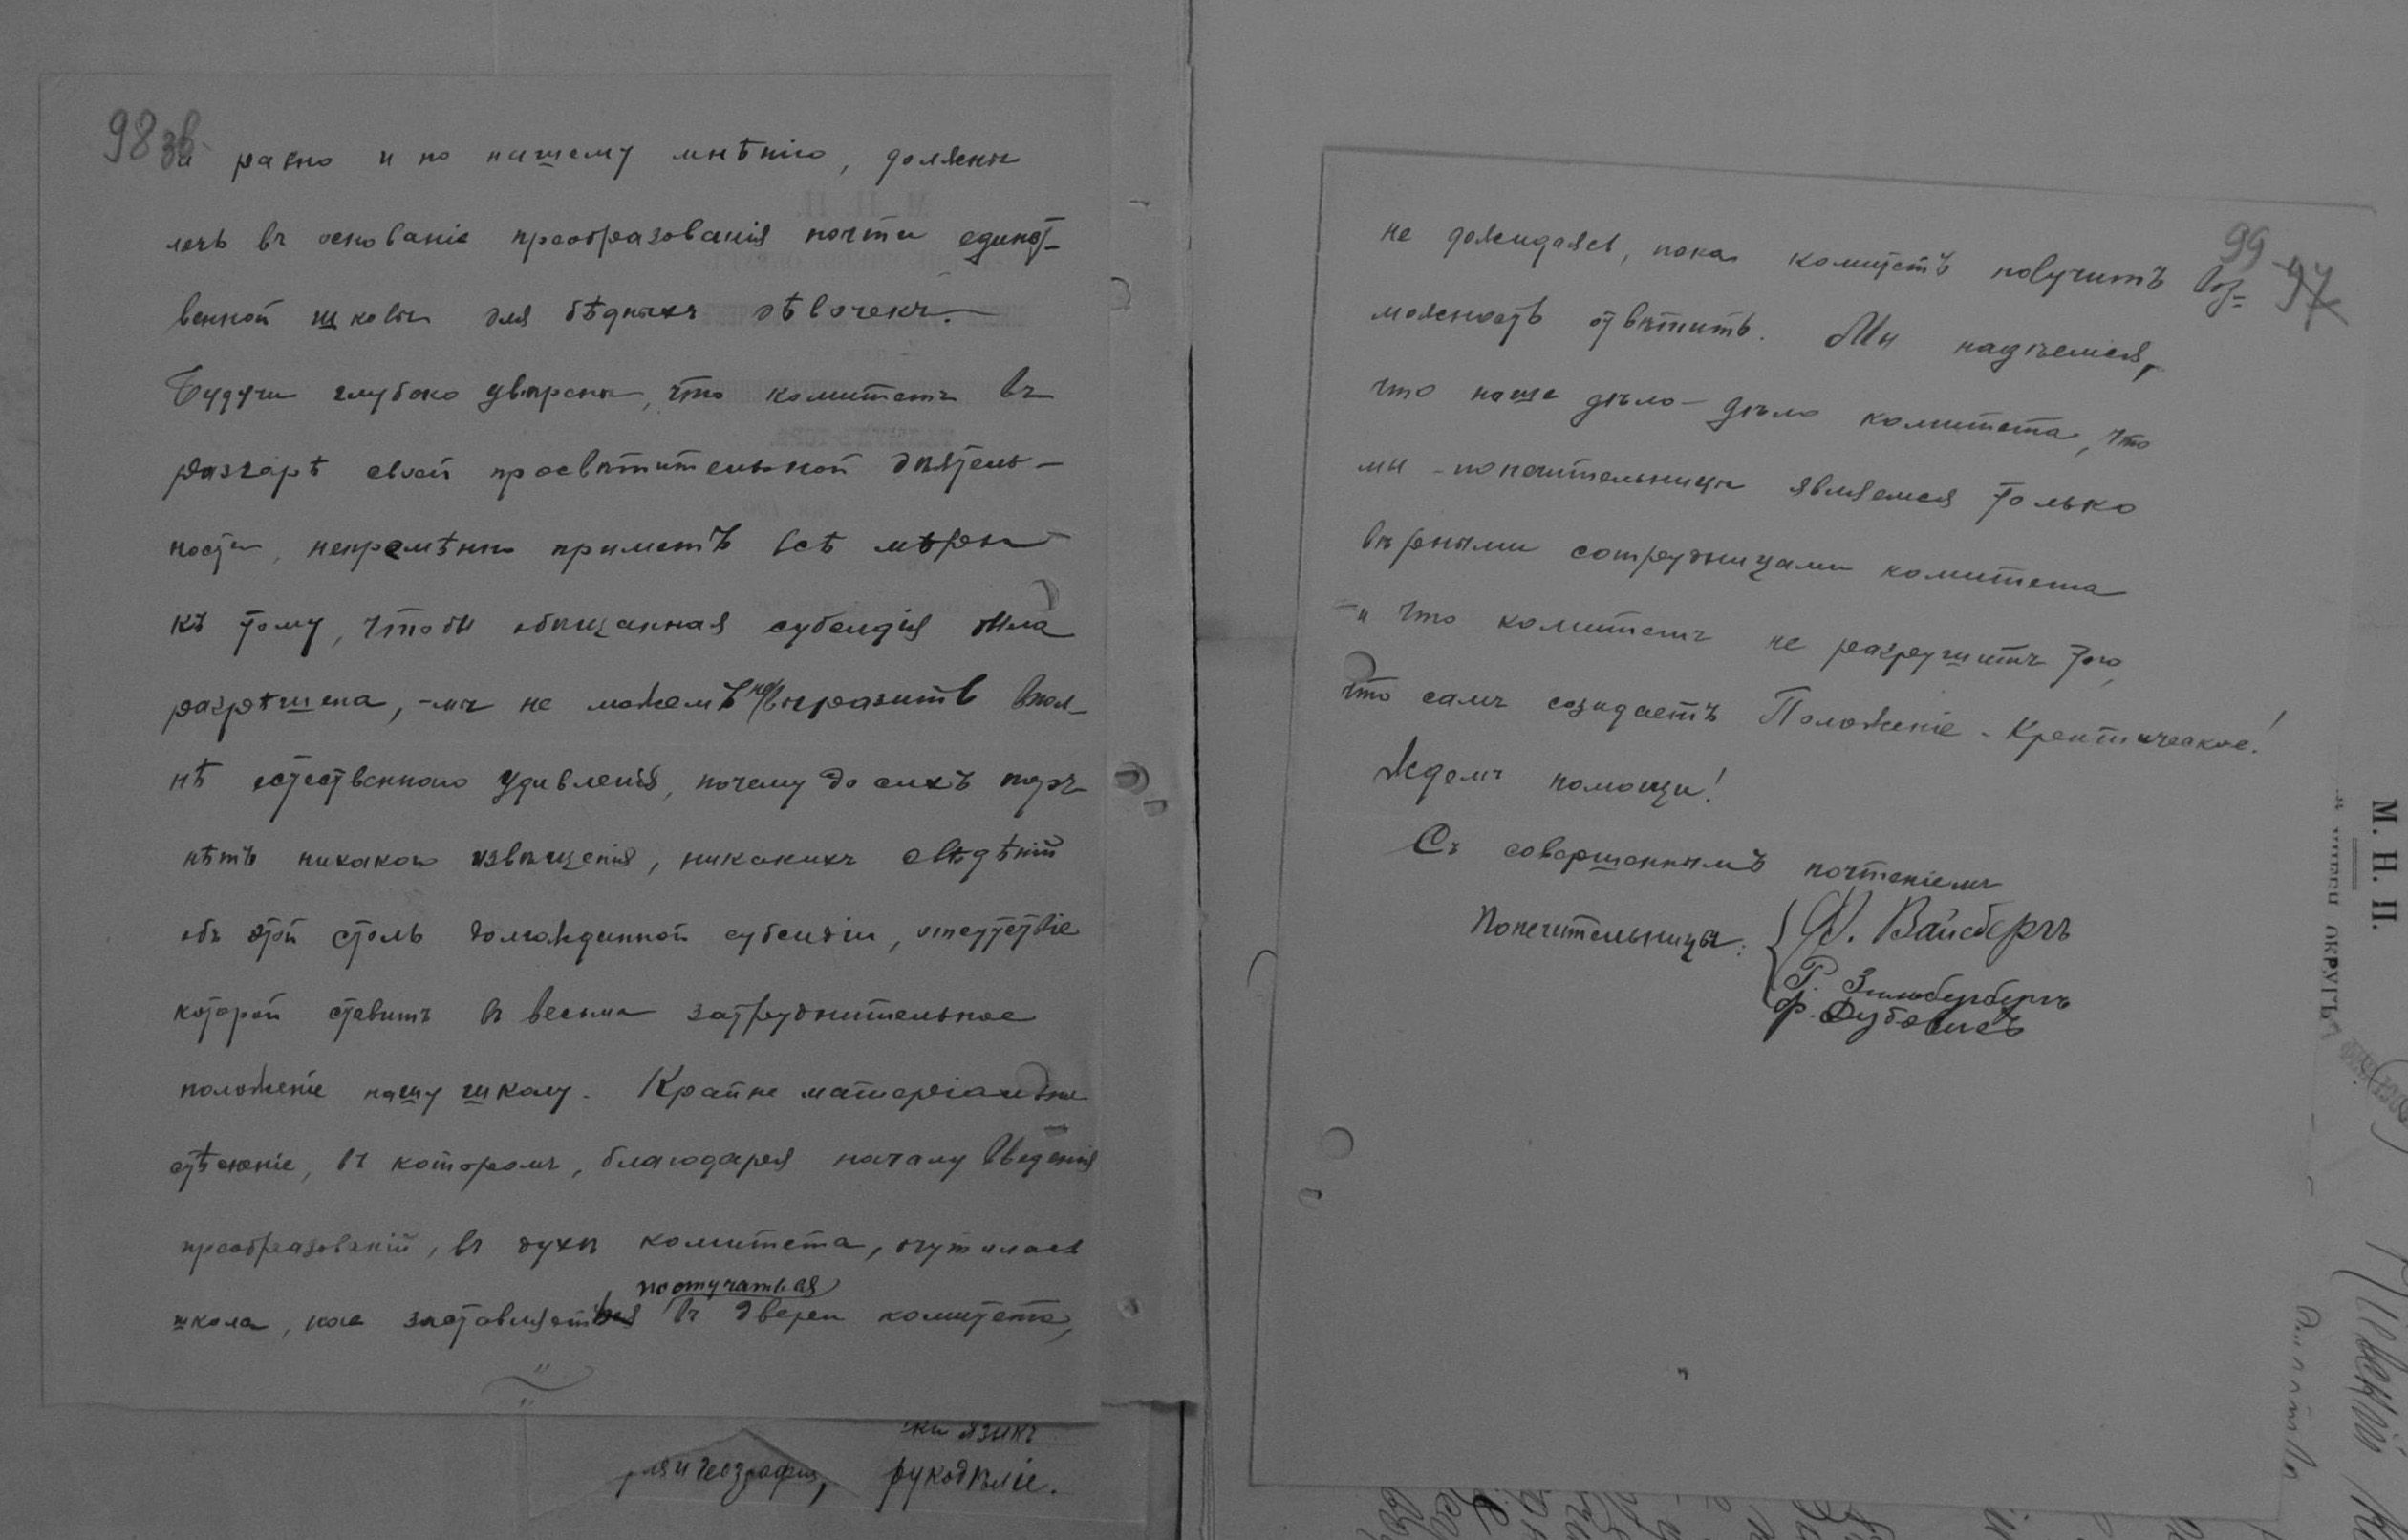 98 зв.
а равно и по нашему мнѣнію, должны
лечь въ основаніе преобразованія почти единст-
венной школы для бѣдныхъ дѣвочекъ.
Будучи глубоко увѣрены, что комитетъ въ
разгарѣ своей просвѣтительной дѣятель-
ности, непремѣнно приметъ всѣ мѣры
къ тому, чтобы обѣщанная субсидія была
разрѣшена, -мы не можемъ не выразить впол-
нѣ естественнаго удивленія, почему до сихъ поръ
нѣтъ никакого извѣщенія, никакихъ свѣдѣній
объ этой столь долгожданной субсидіи, отсутствіе
которой ставитъ въ весьма затруднительное
положеніе нашу школу. Крайне матеріальное
стѣсненіе, въ которомъ, благодаря началу введенія
преобразованій, въ духѣ комитета, очутилась
постучаться
школа, нас заставляетъ въ двери комитета,
ки языкъ
географія, рукодѣліе.
99
97
не дожидаясь, пока комитетъ получитъ воз-
можность отвѣтить. Мы надѣемся,
что наше дѣло - дѣло комитета, что
мы - попечительницы являемся только
вѣрными сотрудницами комитета
-и что комитетъ не разрушитъ того,
что самъ созидаетъ Положеніе - Критическое!
Ждемъ помощи!
Съ совершеннымъ почтеніемъ
Попечительницы: Ф. Вайсбергъ
Р. Зильбербергъ
Ф. Дубовисъ
М. Н. П.
ОКРУГЪ